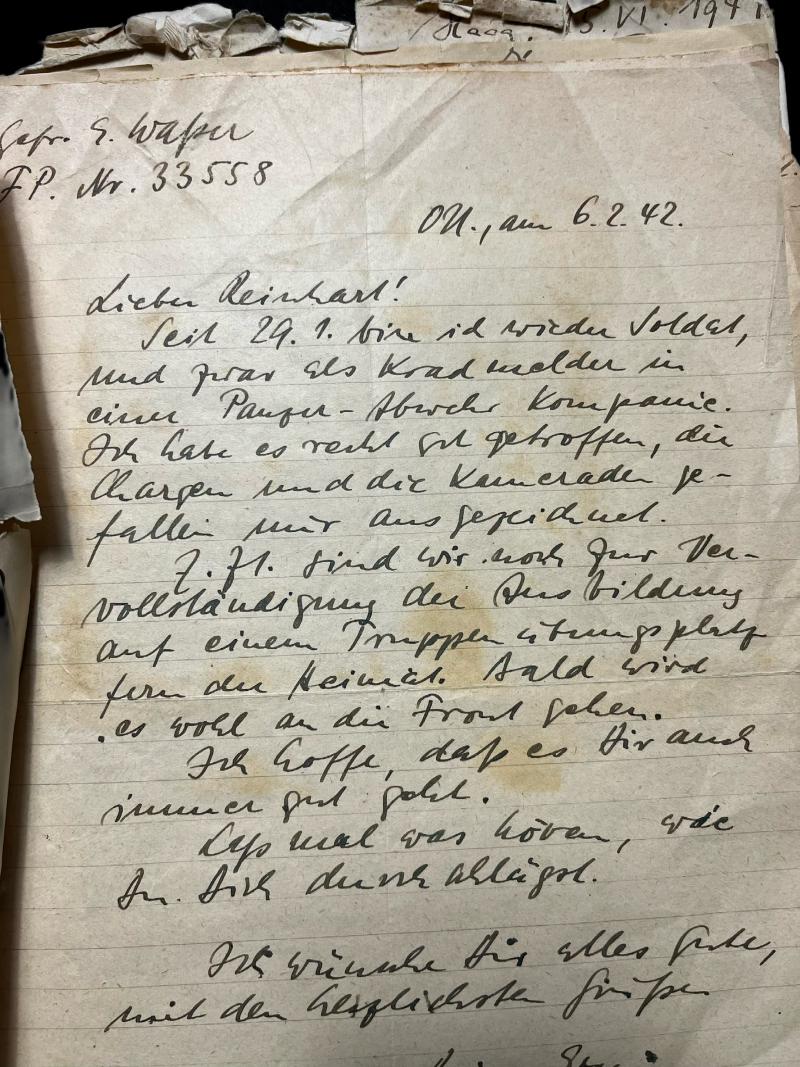 Haag. 5. VI. 1941
Gefr. E. Waßer
FP. Nr. 33558
OU., am 6.2.42.
Lieber Reinhart!
Seit 29. 1. bin ich wieder Soldat,
und zwar als Kradmelder in
einer Panzer-Abwehr Kompanie.
Ich habe es recht gut getroffen, die
Chargen und die Kameraden ge-
fallen mir ausgezeichnet.
Z. Zt. sind wir noch zur Ver-
vollständigung der Ausbildung
auf einem Truppenübungsplatz
fern der Heimat. Bald wird
es wohl an die Front gehen.
Ich hoffe, daß es Dir auch
immer gut geht.
Laß mal was hören, wie
Du Dich durchschlägst.
Ich wünsche Dir alles Gute,
mit den herzlichsten Grüßen